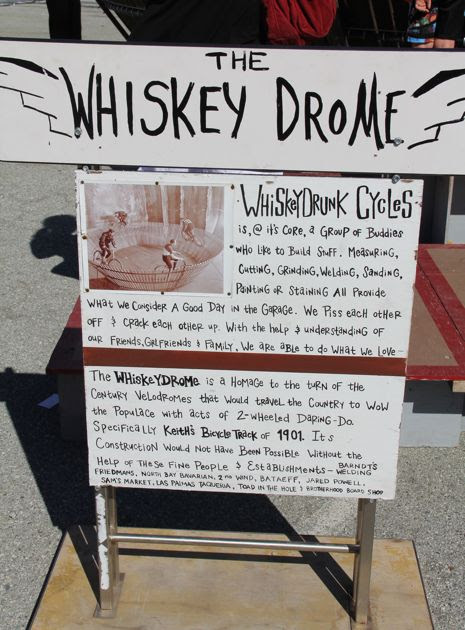 THE
WHISKEY DROME
WHiSKeYDRUNK CYCLeS
is, @ it's CoRe, a GRoup oF BuDDies
who like to BuilD StuFF. MeaSuRiNG,
CuttiNG, GRiNDiNG, WelDiNG, SaNDiNG,
PaiNtiNG oR StaiNiNG All PRoviDe
wHat We CoNsiDeR A GooD Day iN the GaRaGe. We Piss eacH otHeR
oFF & CRacK eacH otHeR up. With the help & uNDeRstaNDiNG of
ouR FRieNDS, GiRlFRieNDS & FaMily, We aRe aBle to Do wHat We Love-
The WHiSKeYDRoMe is a HoMaGe to the tuRN of the
CeNtuRy VeloDRoMes that WoulD tRavel the CouNtRy to WoW
the Populace with acts of 2-wHeeleD DaRiNG-Do.
SpeciFically KeitH's Bicycle TRacK oF 1901. Its
CoNstRuctioN WoulD Not Have BeeN PossiBle WitHout the
Help oF TheSe FiNe People & EstaBlisHMeNts - BARNDT'S WELDING
FRIEDMANS, NORTH BAY BAVARIAN, 2ND WIND, BATAEFF, JARED POWELL,
SAM'S MARKET, LAS PALMAS TAQUERIA, TOAD IN THE HOLE & BROTHERHOOD BOARD SHOP